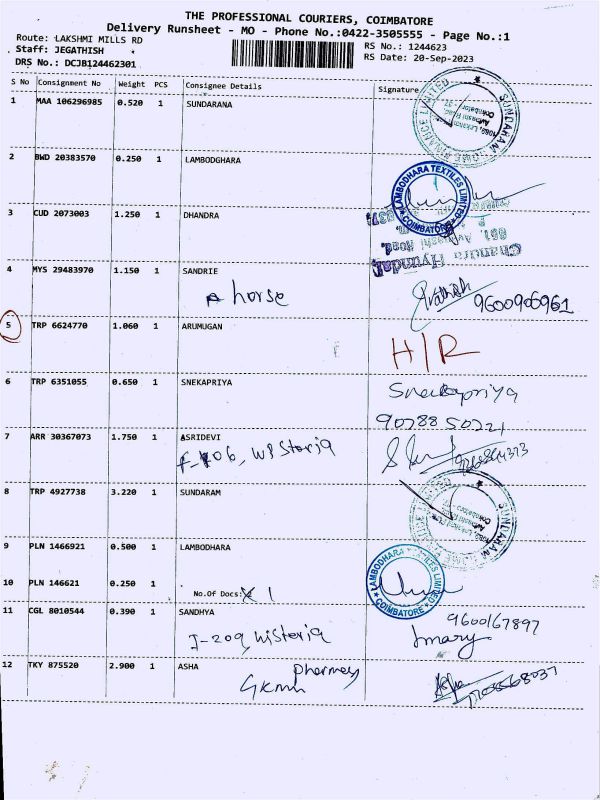 THE PROFESSIONAL COURIERS, COIMBATORE
Delivery Runsheet - MO - Phone No.:0422-3505555 - Page No.:1
Route: LAKSHMI MILLS RD RS No.: 1244623
Staff: JEGATHISH RS Date: 20-Sep-2023
DRS No.: DCJB124462301
S No Consignment No Weight PCS Consignee Details Signature
1 MAA 106296985 0.520 1 SUNDARANA
2 BWD 20383570 0.250 1 LAMBODGHARA
LAMBODHARA TEXTILES LIMITED
* COIMBATORE *
3 CUD 2073003 1.250 1 DHANDRA
Chandra Hyundai,
4 MYS 29483970 1.150 1 SANDRIE
horse 9600906961
5 TRP 6624770 1.060 1 ARUMUGAN
H/R
6 TRP 6351055 0.650 1 SNEKAPRIYA
Snekapriya
7 ARR 30367073 1.750 1 ASRIDEVI
8 TRP 4927738 3.220 1 SUNDARAM
SUNDARAM
9 PLN 1466921 0.500 1 LAMBODHARA
LAMBODHARA TEXTILES LIMITED
* COIMBATORE *
10 PLN 146621 0.250 1
No.Of Docs: 1
11 CGL 8010544 0.390 1 SANDHYA
9600167897
I-209, Wisteria
12 TKY 875520 2.900 1 ASHA
Pharmacy
GKNM Asha